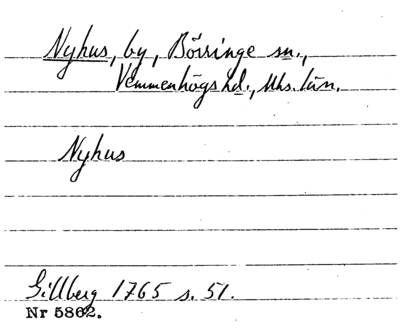 Nyhus, by, Börringe sn.,
Vemmenhögs hd., Mhs. län.
Nyhus
Gillberg 1765 s. 51.
Nr 5862.